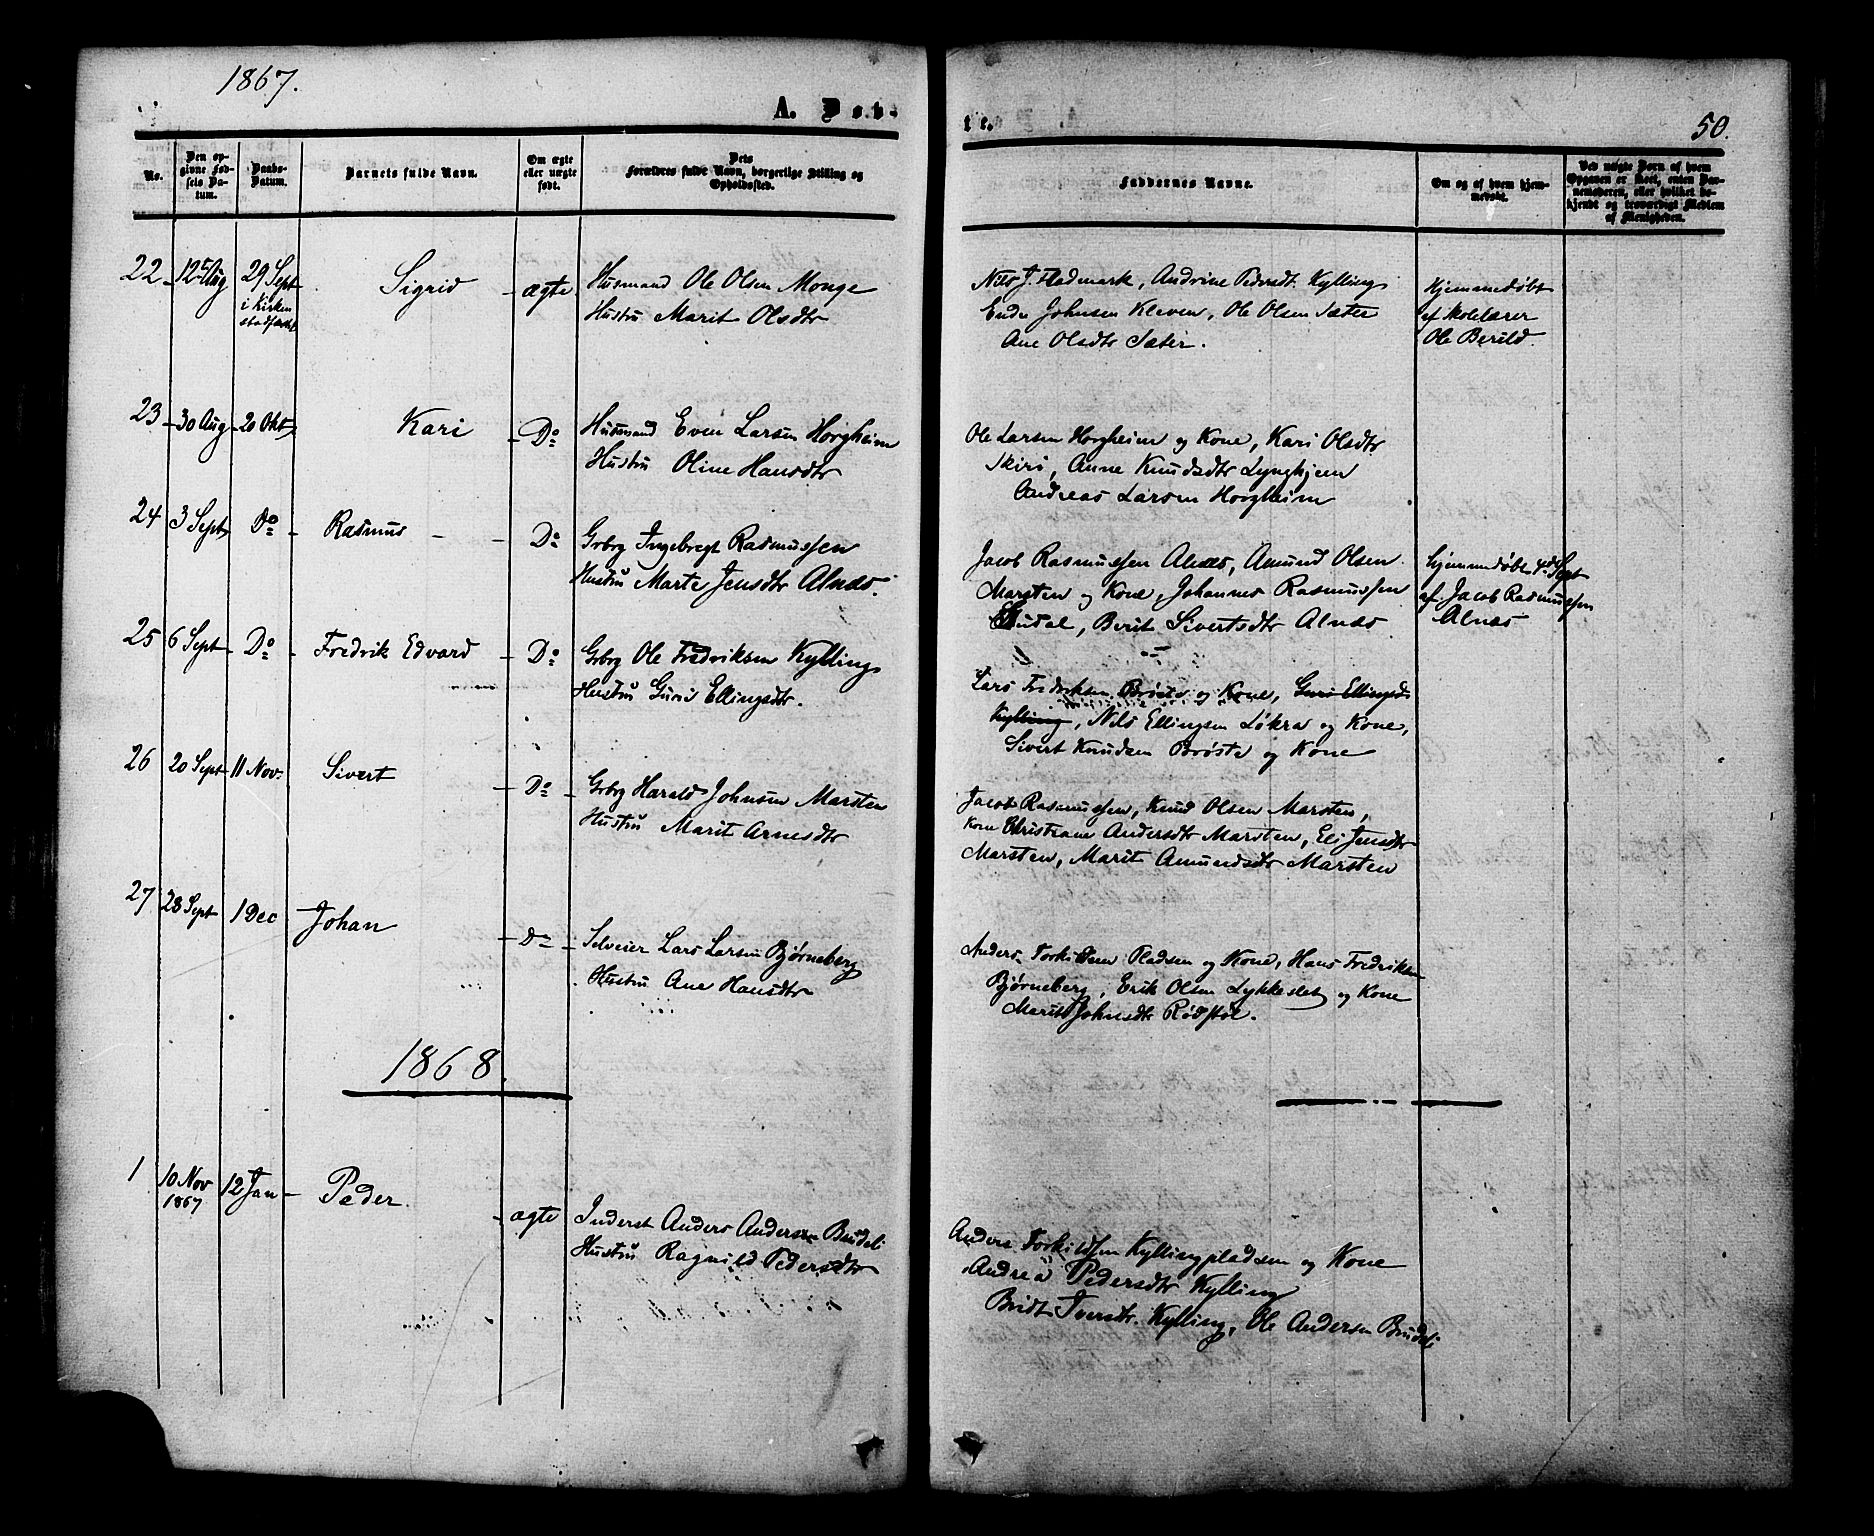 1867.
A. Døb-
te.
50.
No.
Den op-
givne Fød-
sels Da-
tum.
Daabs-
Datum.
Barnets fulde Navn.
Om ægte
eller uægte
født.
Dets
Forældres fulde Navn, borgerlige Stilling og
Opholdssted.
Faddernes Navne.
Om og af hvem hjem-
medøbt.
Ved uægte Børn af hvem
Opgaven er skeet, enten Bar-
nemoderen, eller hvilket be-
kjendt og troværdigt Medlem
af Menigheden.
22 12 Aug 29 Sept
i Kirken
stadfæstet
Sigrid ægte Husmand Ole Olsen Monge
Hustru Marit Olsdtr
Nils J. Fladmark, Andrine Pedersdt Kylling
Endre Johnsen Kleven, Ole Olsen Sæter
Ane Olsdtr Sæter.
Hjemmedøbt
af Skolelærer
Ole Berild.
23 30 Aug 20 Okt Kari Do Husmand Even Larsen Horgheim
Hustru Oline Hansdtr
Ole Larsen Horgheim og Kone, Kari Olsdtr
Skiri, Anne Knudsdtr Lynghjem
Andreas Larsen Horgheim
24 3 Sept Do Rasmus Do Grbrg Ingebregt Rasmussen
Hustru Marte Jensdtr Alnæs.
Jacob Rasmussen Alnæs, Amund Olsen
Marsten og Kone, Johannes Rasmussen
Berit Sivertsdtr Alnæs
Hjemmedøbt 4de Sept
af Jacob Rasmussen
Alnæs
25 6 Sept Do Fredrik Edvard Do Grbrg Ole Fredriksen Kylling
Hustru Guri Ellingsdtr.
Lars Fredriksen Brøste og Kone, Guri Ellingsd
Kylling, Nils Ellingsen Løkra og Kone,
Sivert Knudsen Brøste og Kone
26 20 Sept 11 Nov. Sivert Do Grbrg Harald Johnsen Marsten
Hustru Marit Arnesdtr
Jacob Rasmussen, Knud Olsen Marsten,
Kone Christiane Andersdtr Marsten, Eli Jensdtr
Marsten, Marit Amundsdtr Marsten
27 28 Sept 1 Dec Johan Do Selveier Lars Larsen Bjørneberg
Hustru Ane Hansdtr
Anders Torkildsen Pladsen og Kone, Hans Fredriksen
Bjørneberg, Erik Olsen Lykkeslet og Kone
Marit Johnsdtr Rødstøl.
1868.
1 10 Nov
1867
12 Jan Peder ægte Inderst Anders Andersen Bredeli
Hustru Ragnild Pedersdtr
Anders Torkildsen Kyllingpladsen og Kone
Andrea Pedersdtr Kylling
Iversdtr. Kylling, Ole Andersen Bredeli